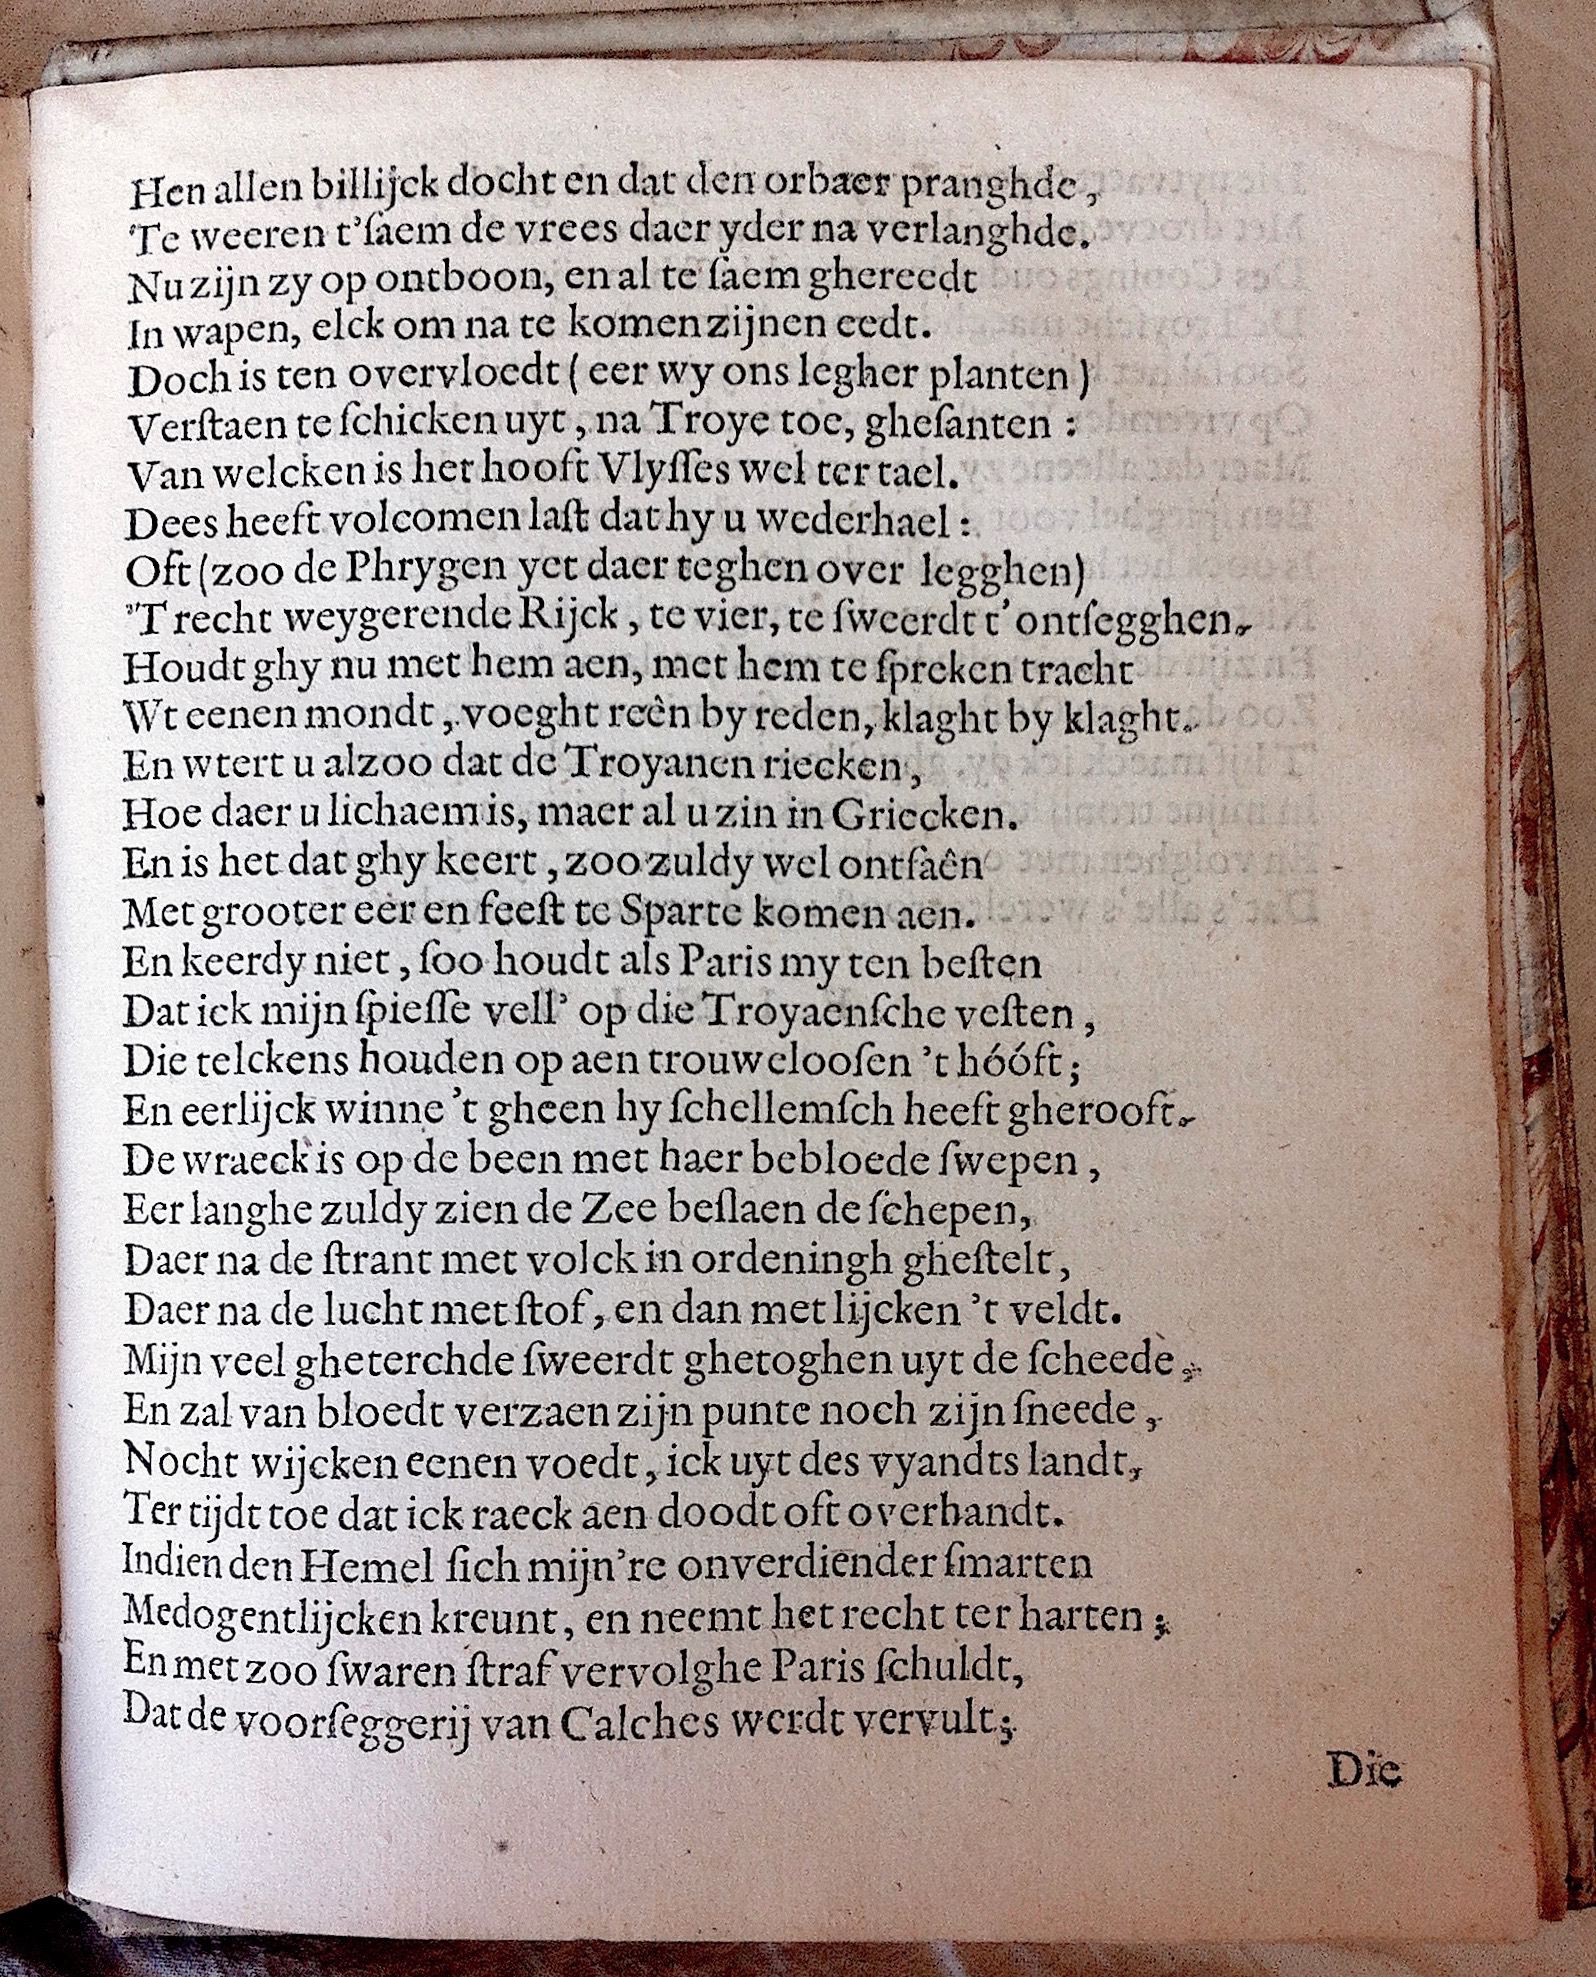 Hen allen billijck docht en dat den orbaer pranghde,
'Te weeren t'ſaem de vrees daer yder na verlanghde.
Nu zijn zy op ontboon, en al te ſaem ghereedt
In wapen, elck om na te komen zijnen eedt.
Doch is ten overvloedt (eer wy ons legher planten)
Verſtaen te ſchicken uyt, na Troye toe, gheſanten:
Van welcken is het hooft Vlyſſes wel ter tael.
Dees heeft volcomen laſt dat hy u wederhael:
Oft (zoo de Phrygen yet daer teghen over legghen)
'T recht weygerende Rijck, te vier, te ſweerdt t'ontſegghen.
Houdt ghy nu met hem aen, met hem te ſpreken tracht
Wt eenen mondt, voeght reên by reden, klaght by klaght.
En wtert u alzoo dat de Troyanen riecken,
Hoe daer u lichaem is, maer al u zin in Griecken.
En is het dat ghy keert, zoo zuldy wel ontfaên
Met grooter eer en feeſt te Sparte komen aen.
En keerdy niet, ſoo houdt als Paris my ten beſten
Dat ick mijn ſpieſſe vell' op die Troyaenſche veſten,
Die telckens houden op aen trouwelooſen 't hóóft;
En eerlijck winne 't gheen hy ſchellemſch heeft gherooft.
De wraeck is op de been met haer bebloede ſwepen,
Eer langhe zuldy zien de Zee beſlaen de ſchepen,
Daer na de ſtrant met volck in ordeningh gheſtelt,
Daer na de lucht met ſtof, en dan met lijcken 't veldt.
Mijn veel gheterchde ſweerdt ghetoghen uyt de ſcheede,
En zal van bloedt verzaen zijn punte noch zijn ſneede,
Nocht wijcken eenen voedt, ick uyt des vyandts landt,
Ter tijdt toe dat ick raeck aen doodt oft overhandt.
Indien den Hemel ſich mijn're onverdiender ſmarten
Medogentlijcken kreunt, en neemt het recht ter harten;
En met zoo ſwaren ſtraf vervolghe Paris ſchuldt,
Dat de voorſeggerij van Calches werdt vervult;
Die